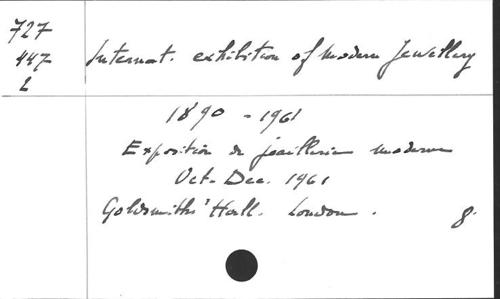 727
447
2
Internat. exhibition of modern Jewellery
1890 - 1961
Exposition de joaillerie moderne
Oct-Dec. 1961
Goldsmiths' Hall. London. 8.